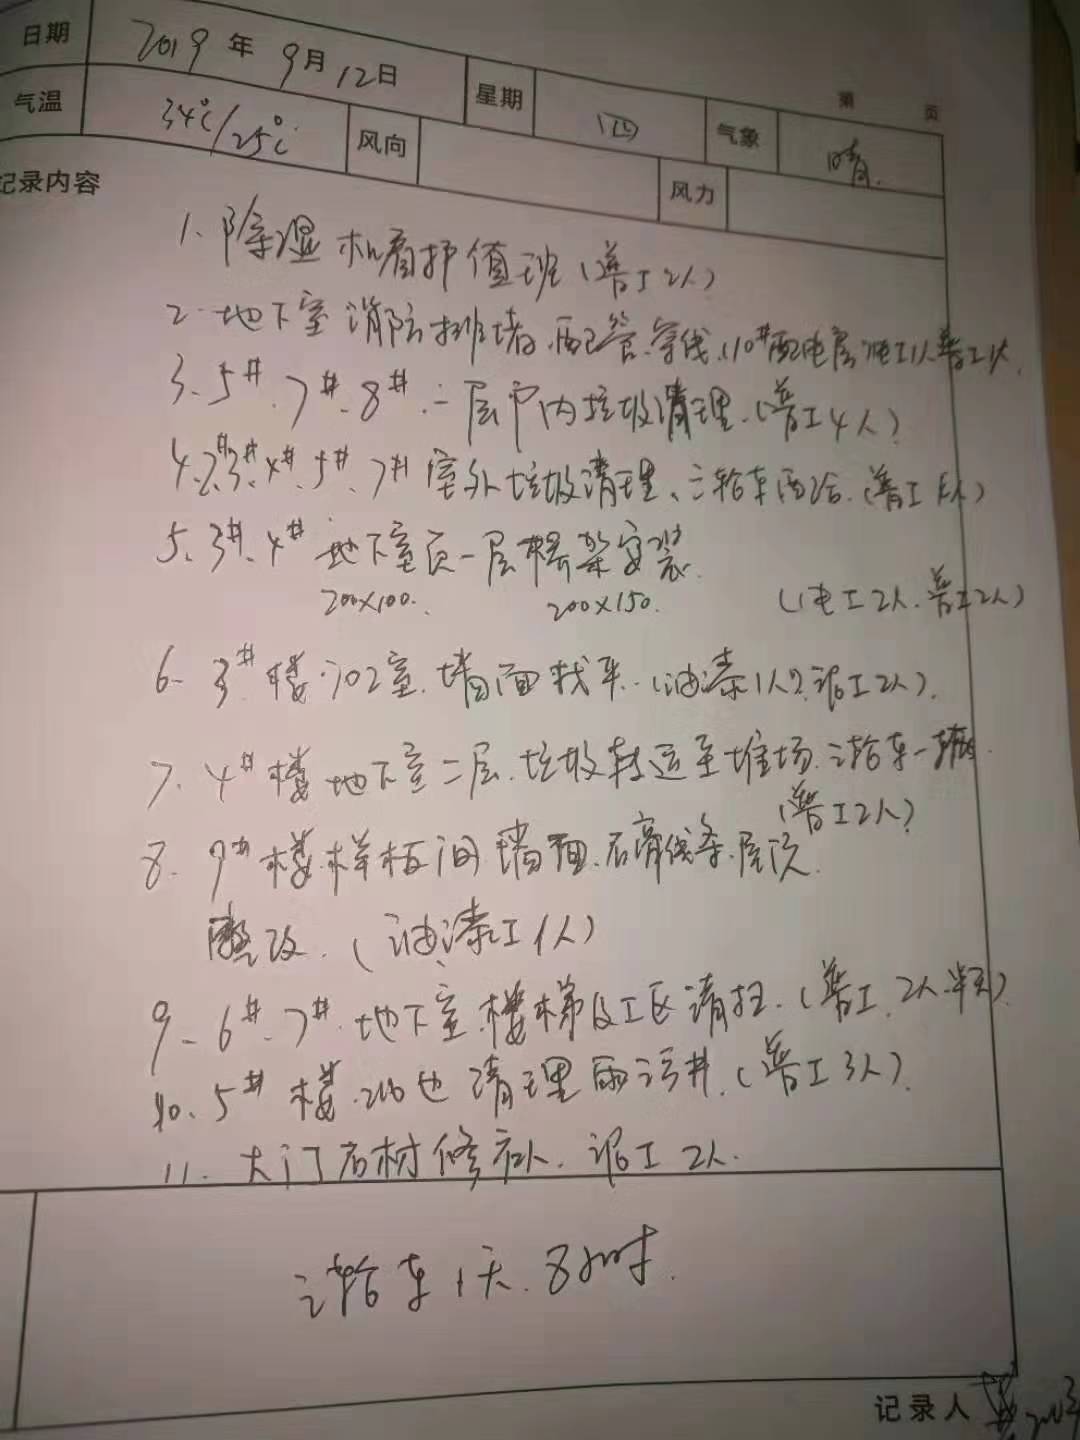 第 页
日期 2019年9月12日 星期 四 气象 晴.
气温 34℃/25℃ 风向 风力
记录内容
1、除湿机看护值班(普工2人)
2、地下室消防排堵、配管、穿线、(10#配电房)电工1人普工1人.
3、5#、7#、8#、一层户内垃圾清理.(普工4人)
4、2#、3#、4#、5#、7#室外垃圾清理、三轮车配合.(普工 人)
5、3#、4#地下室页一层桥架安装.
200×100. 200×150. (电工2人.普工2人)
6、3#楼702室.墙面找平.(油漆1人.泥工2人).
7、4#楼地下室二层.垃圾转运至堆场.三轮车一辆.
(普工2人)
8、9#楼样板间墙面.石膏线条.屋顶.
整改.(油漆工1人)
9、6#、7#.地下室.楼梯及工区清扫.(普工.2人.半天).
10、5#楼 清理雨污井.(普工3人).
11.大门石材修补.泥工2人.
三轮车1天.8小时.
记录人